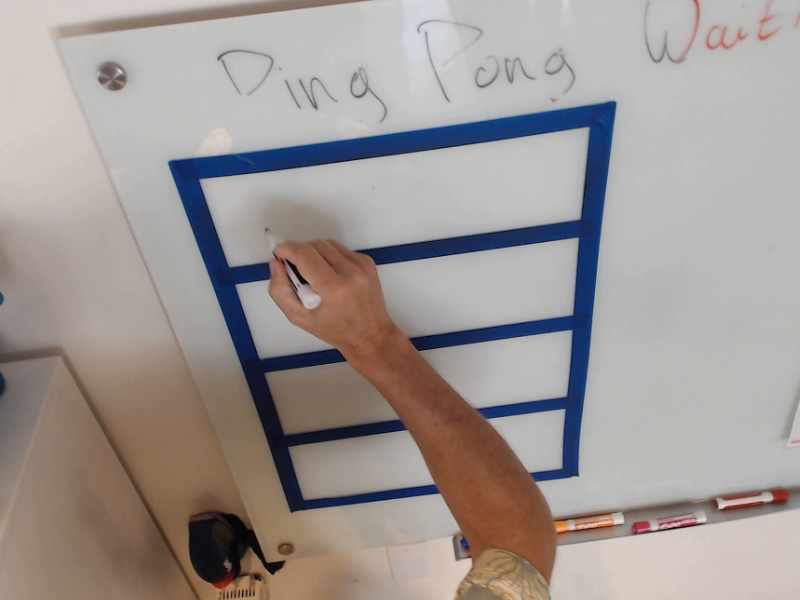 Ding Pong
Wait